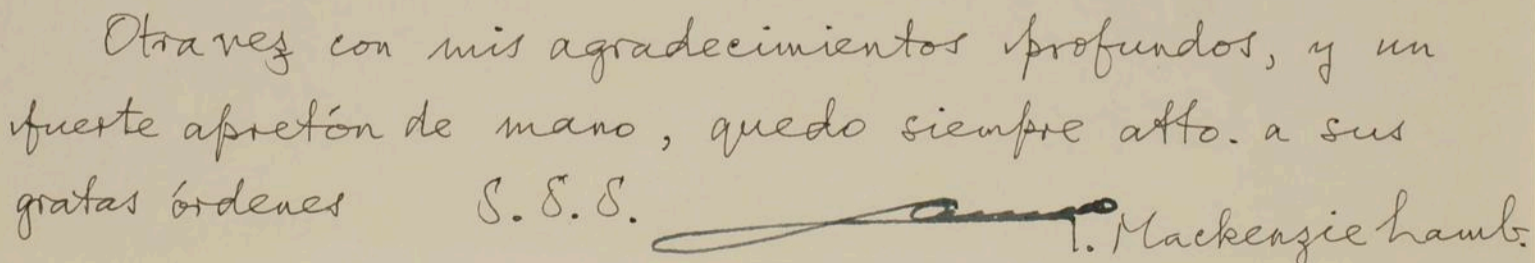 Otra vez con mis agradecimientos profundos, y un
fuerte apretón de mano, quedo siempre atto. a sus
gratas órdenes S. S. S.
I. Mackenzie Lamb.